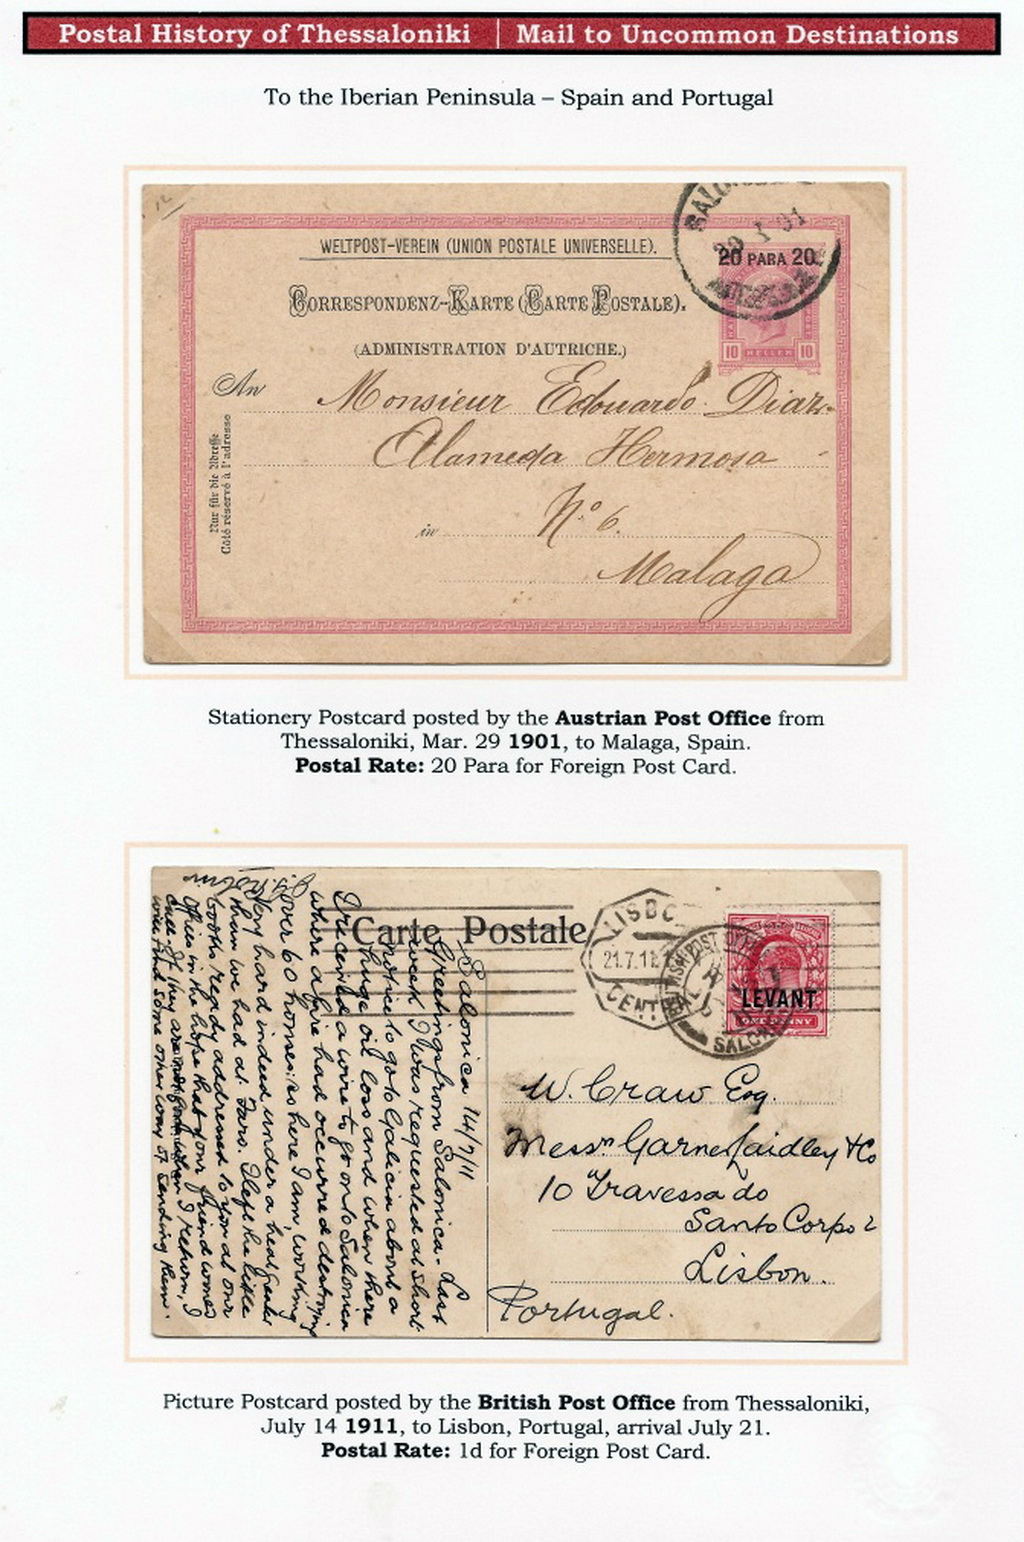 Postal History of Thessaloniki | Mail to Uncommon Destinations
To the Iberian Peninsula – Spain and Portugal
WELTPOST-VEREIN (UNION POSTALE UNIVERSELLE).
CORRESPONDENZ-KARTE (CARTE POSTALE).
(ADMINISTRATION D'AUTRICHE.)
20 PARA 20
10 HELLER 10
An
Monsieur Edouardo Diaz
Alameda Hermosa
Nº 6.
in
Malaga
Nur für die Adresse
Côté réservé à l'adresse
Stationery Postcard posted by the Austrian Post Office from
Thessaloniki, Mar. 29 1901, to Malaga, Spain.
Postal Rate: 20 Para for Foreign Post Card.
Carte Postale
21.7.11
LEVANT
ONE PENNY
Salonica 14/7/11
Greetings from Salonica. Last
week I was requested at short
notice to go to Galicia about a
huge oil loss and when there
I received a wire to go on to Salonica
where a fire had occurred destroying
over 60 houses: so here I am, working
very hard indeed under a heat greater
than we had at Faro. I left the little
books ready addressed to you at our
Office in the hope that your friend would
call. If they are not gone when I return, I
will find some other way of sending them.
W. Craw Esq.
Messrs Garne Laidley & Co
10 Travessa do
Santo Corpo 2
Lisbon.
Portugal.
Picture Postcard posted by the British Post Office from Thessaloniki,
July 14 1911, to Lisbon, Portugal, arrival July 21.
Postal Rate: 1d for Foreign Post Card.